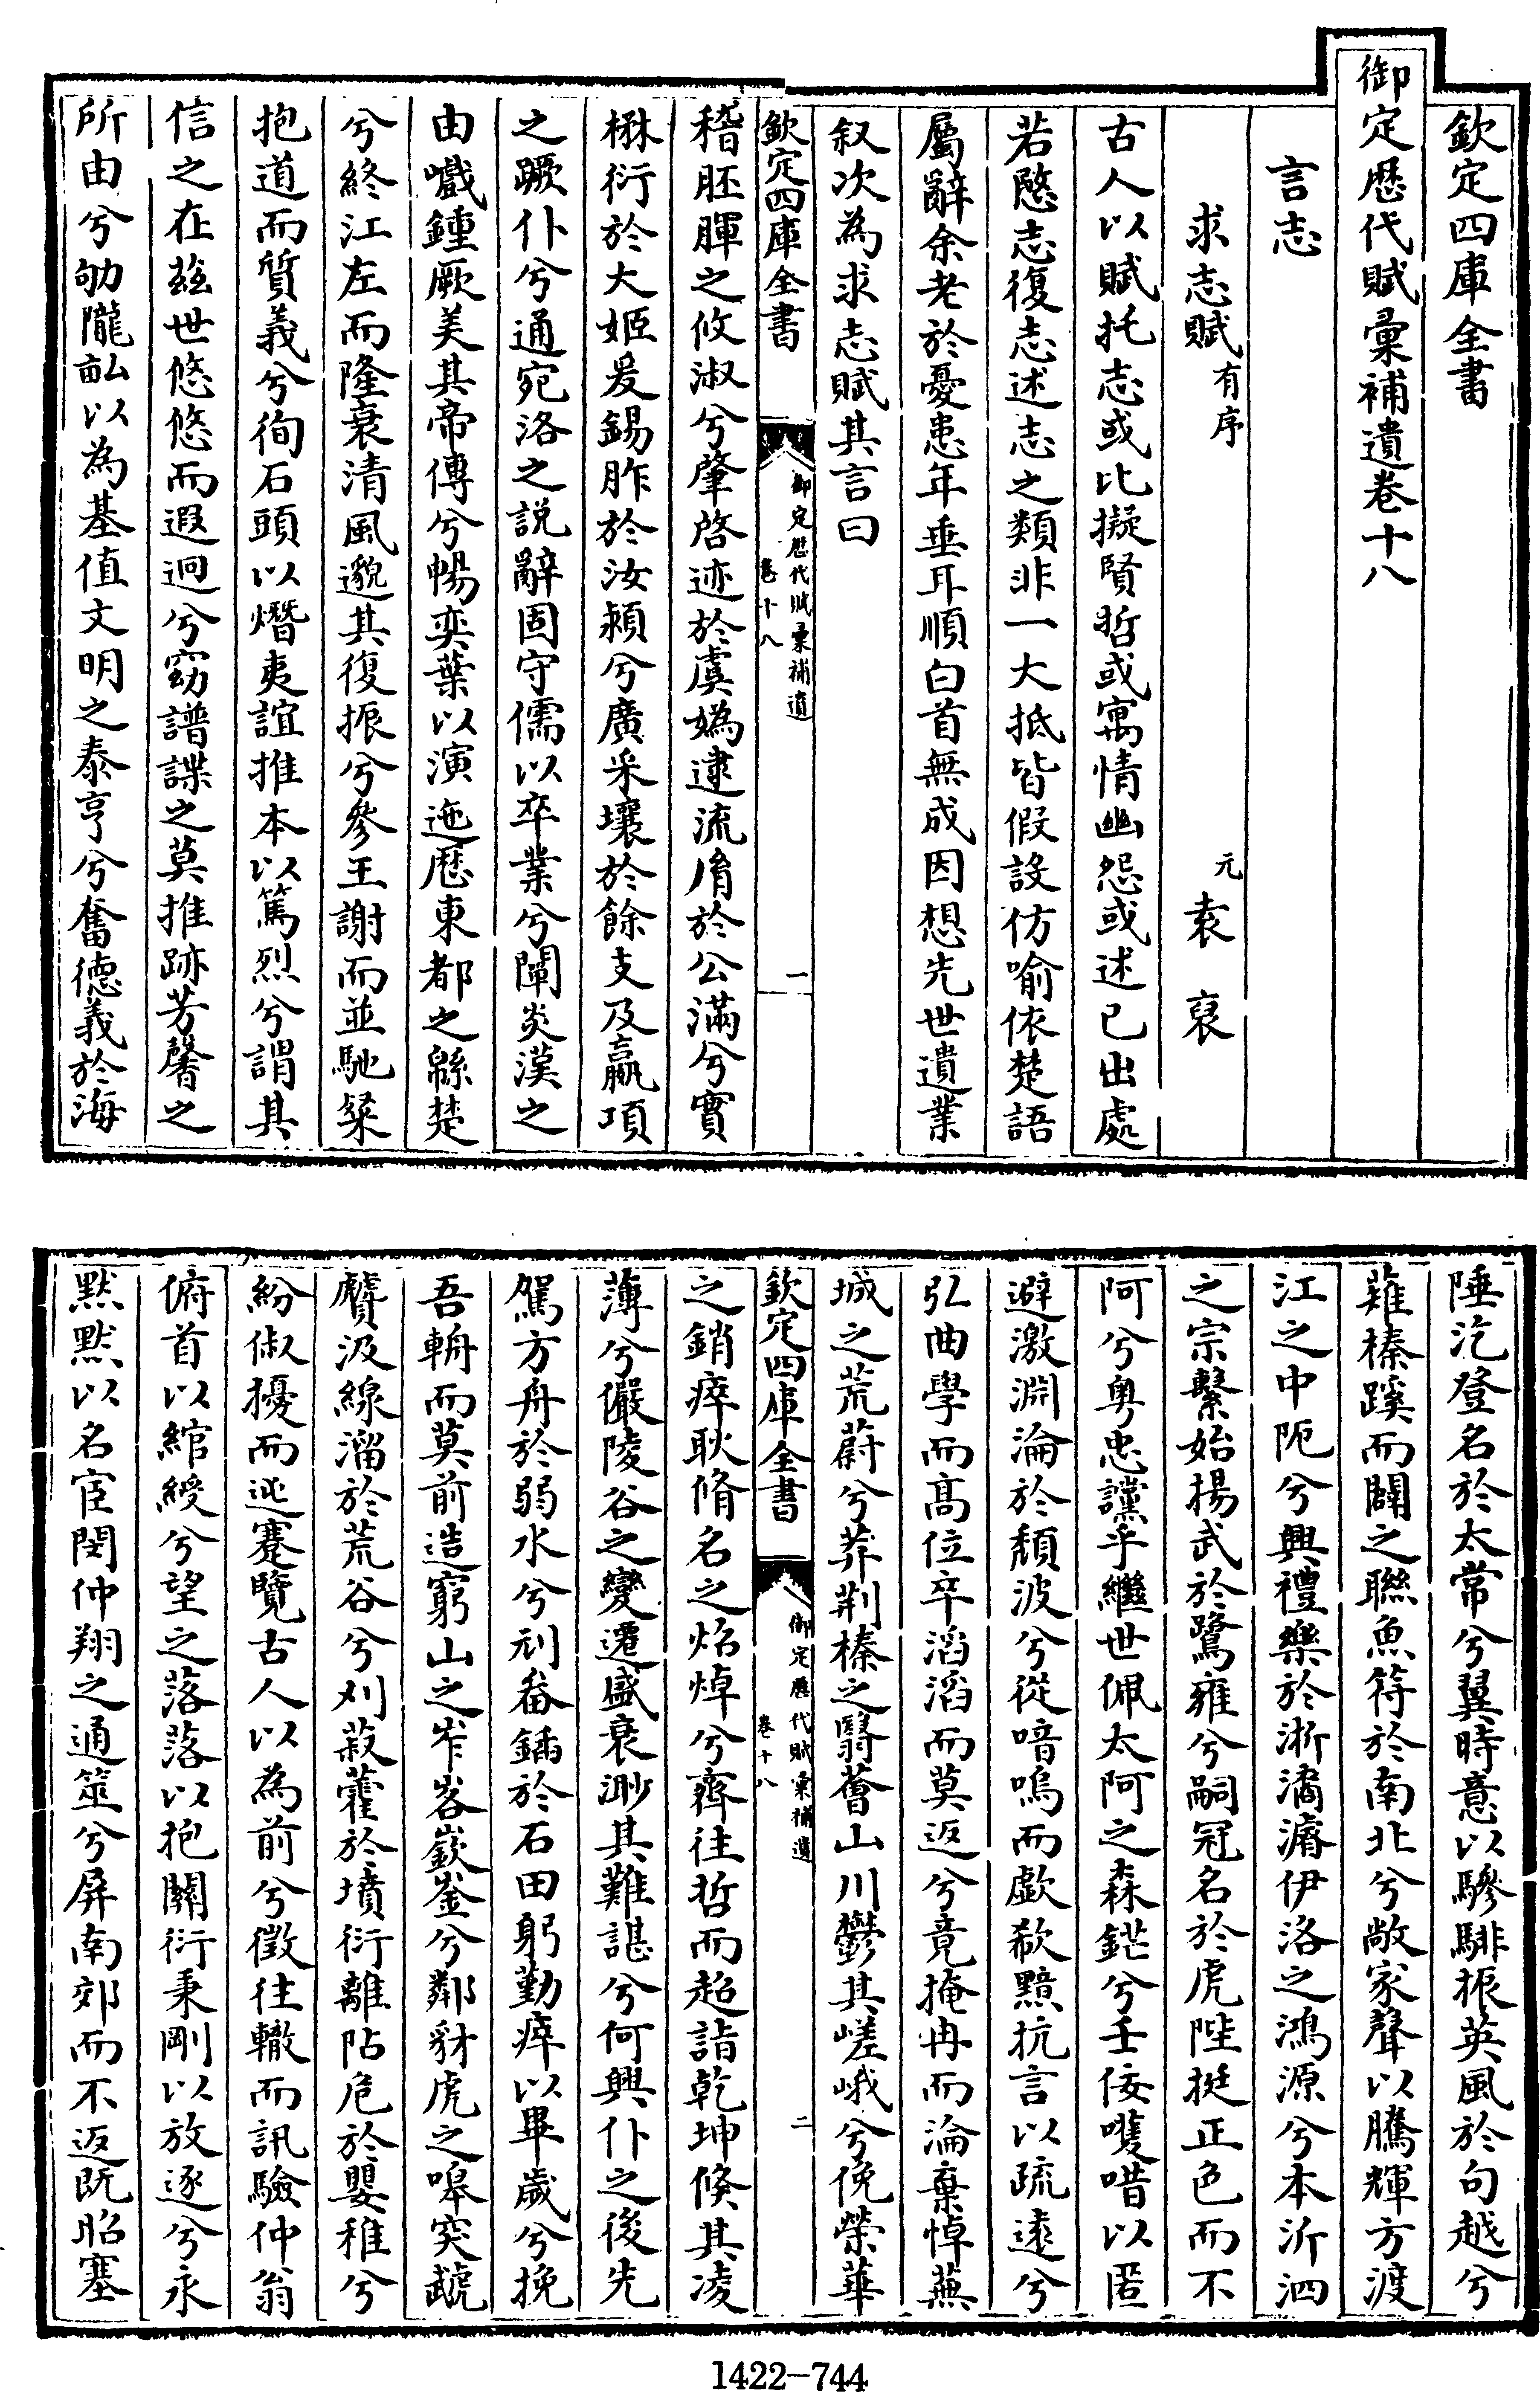 欽定四庫全書
御定歷代賦彙補遺卷十八
言志
求志賦有序
元袁裒
古人以賦托志或比擬賢哲或寓情幽怨或述已出處
若愍志復志述志之類非一大抵皆假設仿喻依楚語
屬辭余老於憂患年垂耳順白首無成因想先世遺業
叙次為求志賦其言曰
欽定四庫全書
御定歷代賦彙補遺
卷十八
一
稽胚腪之攸淑兮肇啓迹於虞嬀逮流胤於公滿兮實
楙衍於大姬爰錫胙於汝潁兮廣釆壤於餘支及嬴項
之蹶仆兮通宛洛之説辭固守儒以卒業兮闡炎漢之
由巇鍾厥美其帝傅兮暢奕葉以演迤歷東都之緜楚
兮終江左而隆衰清風邈其復振兮參王謝而並馳粲
抱道而質義兮徇石頭以熸夷誼推本以篤烈兮謂其
信之在茲世悠悠而遐迥兮窈譜諜之莫推跡芳馨之
所由兮劬隴畝以為基值文明之泰亨兮奮德義於海
陲汔登名於太常兮翼時意以驂騑振英風於句越兮
薙榛蹊而闢之聯魚符於南北兮敞家聲以騰輝方渡
江之中阨兮興禮樂於淛潏濬伊洛之鴻源兮本沂泗
之宗繫始揚武於鷺雍兮嗣冠名於虎陛挺正色而不
阿兮粤忠讜乎繼世佩太阿之森鋩兮壬佞嚄唶以匿
避激淵淪於頹波兮從喑嗚而歔欷黯抗言以疏遠兮
弘曲學而髙位卒滔滔而莫返兮竟掩冉而淪棄悼蕪
城之荒蔚兮莽荆榛之翳薈山川鬱其嵯峨兮俛榮華
欽定四庫全書
御定歷代賦彙補遺
卷十八
二
之銷瘁耿脩名之焰焯兮齊往哲而超詣乾坤倏其凌
薄兮儼陵谷之變遷盛衰渺其難諶兮何興仆之後先
駕方舟於弱水兮剡畚鍤於石田躬勤瘁以畢歲兮挽
吾輈而莫前造窮山之岝峉嶔崟兮鄰豺虎之嘷突虣
贙汲線溜於荒谷兮刈菽藿於墳衍離阽危於嬰稚兮
紛俶擾而迍蹇覽古人以為前兮徵往轍而訊驗仲翁
俯首以綰綬兮望之落落以抱關衍秉剛以放逐兮永
默默以名宦閔仲翔之通筮兮屏南郊而不返既眙塞
1422-744